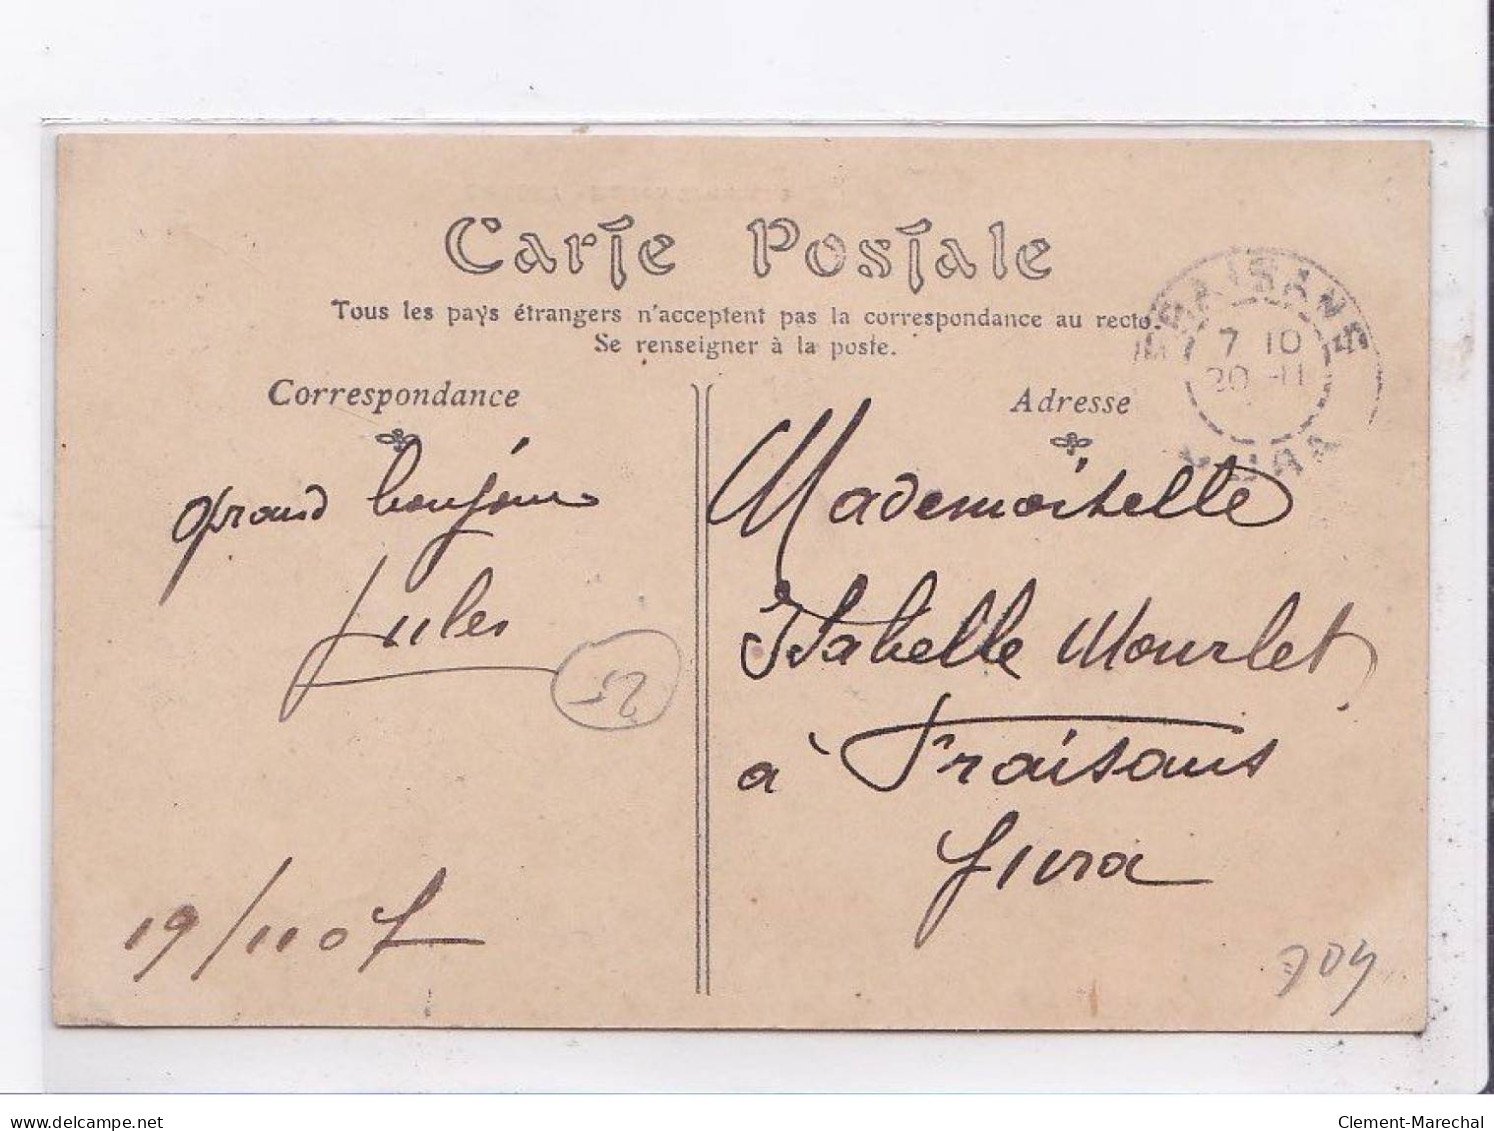 Carte Postale
Tous les pays étrangers n'acceptent pas la correspondance au recto.
Se renseigner à la poste.
Correspondance
Adresse
FRAISANS
7 10
20 -11
JURA
grand bonjour
Jules
25
19/11 07
Mademoiselle
Isabelle Mourlet
à Fraisans
Jura
www.delcampe.net
Clement-Marechal